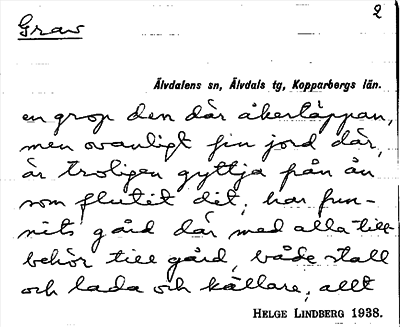 Grav
2
Älvdalens sn, Älvdals tg, Kopparbergs län.
en grop den där åkertäppan,
men ovanligt fin jord där,
är troligen gyttja från ån
som flutit dit, har fun-
nits gård där med alla till-
behör till gård, både stall
och lada och källare, allt
HELGE LINDBERG 1938.